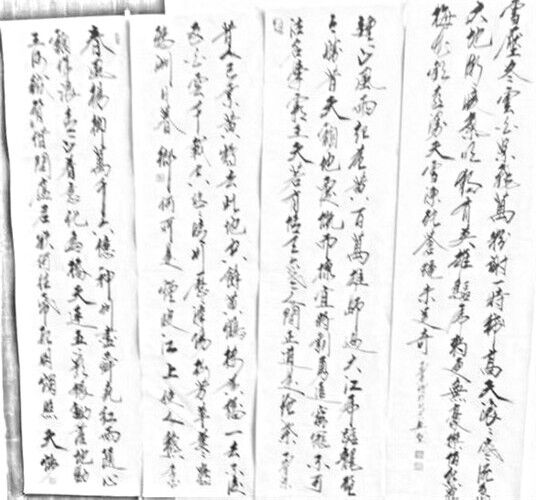 雪壓冬雲白絮飛萬花紛謝一時稀高天滾滾寒流急
大地微微暖氣吹獨有英雄驅虎豹更無豪傑怕熊羆
梅花歡喜漫天雪凍死蒼蠅未足奇
鍾山風雨起蒼黃百萬雄師過大江虎踞龍盤
今勝昔天翻地覆慨而慷宜將剩勇追窮寇不可
沽名學霸王天若有情天亦老人間正道是滄桑
昔人已乘黃鶴去此地空餘黃鶴樓黃鶴一去不復
返白雲千載空悠悠晴川歷歷漢陽樹芳草萋萋鸚
鵡洲日暮鄉關何處是煙波江上使人愁
春風楊柳萬千條六億神州盡舜堯紅雨隨心
翻作浪青山着意化為橋天連五嶺銀鋤落地動
三河鐵臂搖借問瘟君欲何往紙船明燭照天燒